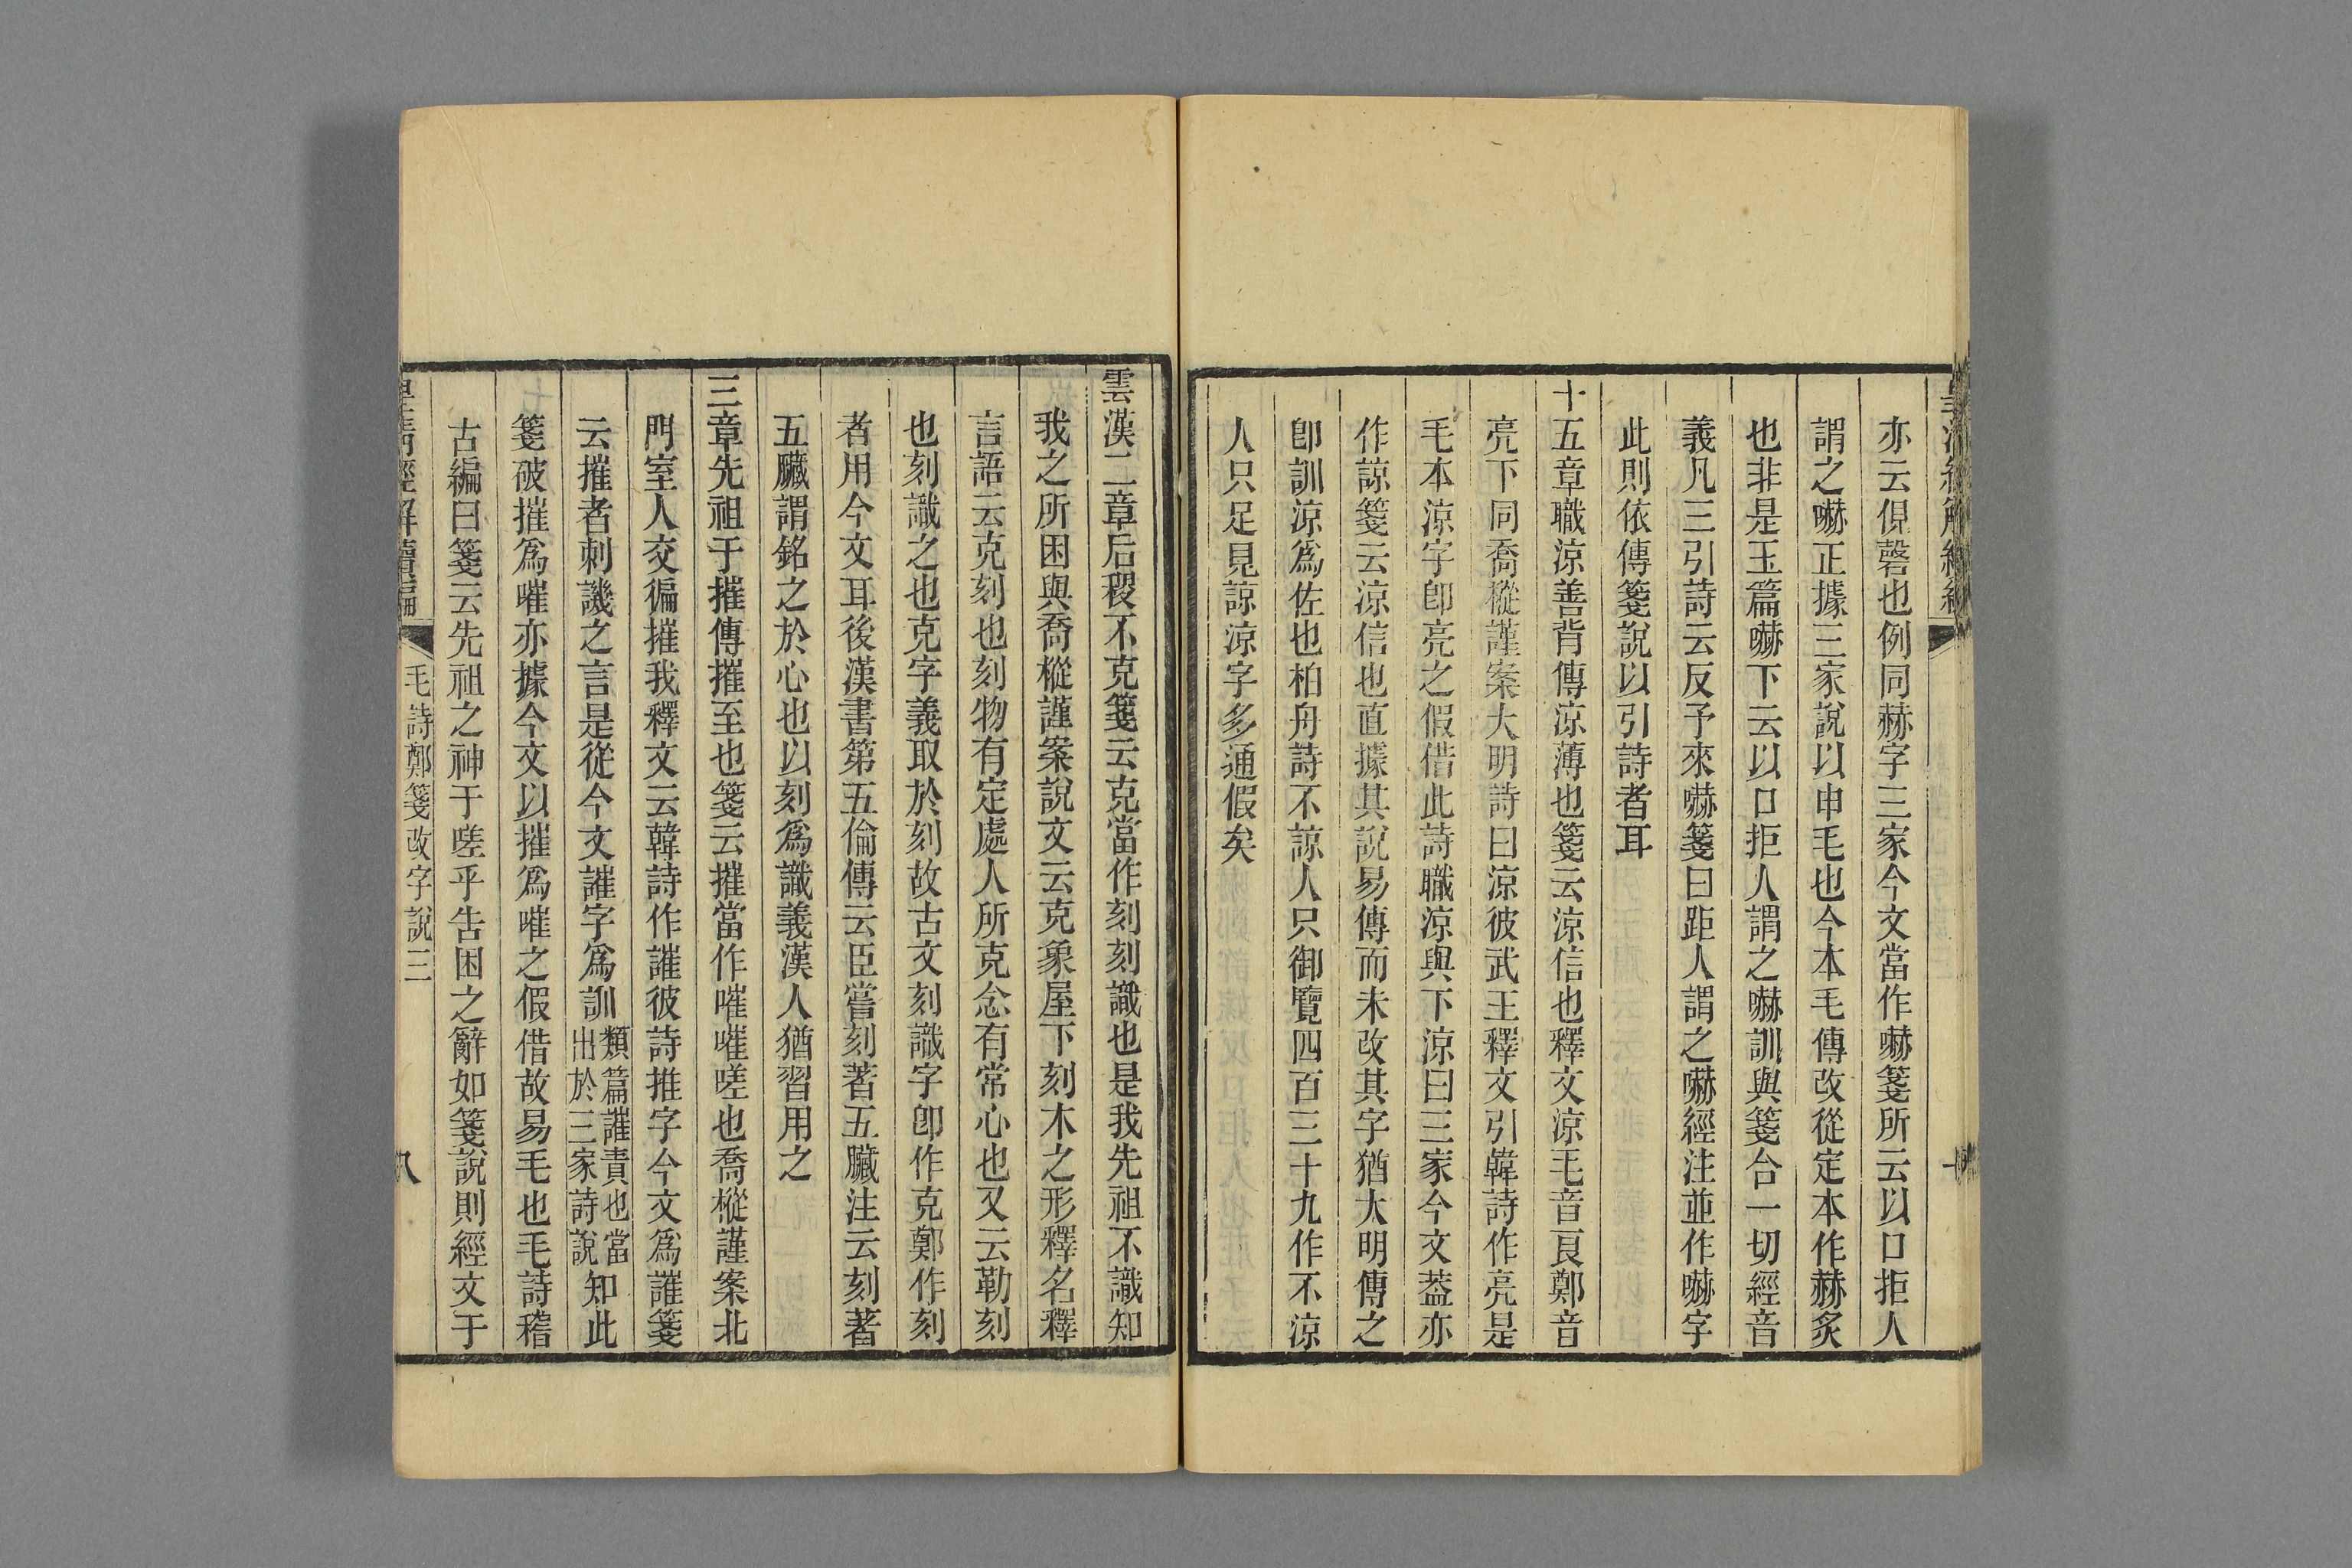 亦云俔磬也例同赫字三家今文當作嚇箋所云以口拒人
謂之嚇正據三家說以申毛也今本毛傳改從定本作赫炙
也非是玉篇嚇下云以口拒人謂之嚇訓與箋合一切經音
義凡三引詩云反予來嚇箋曰距人謂之嚇經注並作嚇字
此則依傳箋說以引詩者耳
十五章職涼善背傳涼薄也箋云涼信也釋文涼毛音良鄭音
亮下同喬樅謹案大明詩曰涼彼武王釋文引韓詩作亮是
毛本涼字卽亮之假借此詩職涼與下涼曰三家今文葢亦
作諒箋云涼信也直據其說易傳而未改其字猶大明傳之
卽訓涼爲佐也柏舟詩不諒人只御覽四百三十九作不涼
人只足見諒涼字多通假矣
雲漢二章后稷不克箋云克當作刻刻識也是我先祖不識知
我之所困與喬樅謹案說文云克象屋下刻木之形釋名釋
言語云克刻也刻物有定處人所克念有常心也又云勒刻
也刻識之也克字義取於刻故古文刻識字卽作克鄭作刻
者用今文耳後漢書第五倫傳云臣嘗刻著五臟注云刻著
五臟謂銘之於心也以刻爲識義漢人猶習用之
三章先祖于摧傳摧至也箋云摧當作嗺嗺嗟也喬樅謹案北
門室人交徧摧我釋文云韓詩作讙彼詩推字今文爲讙箋
云摧者刺譏之言是從今文讙字爲訓類篇讙責也當出於三家詩說知此
箋破摧爲嗺亦據今文以摧爲嗺之假借故易毛也毛詩稽
古編曰箋云先祖之神于嗟乎告困之辭如箋說則經文于
毛詩鄭箋改字說三
八